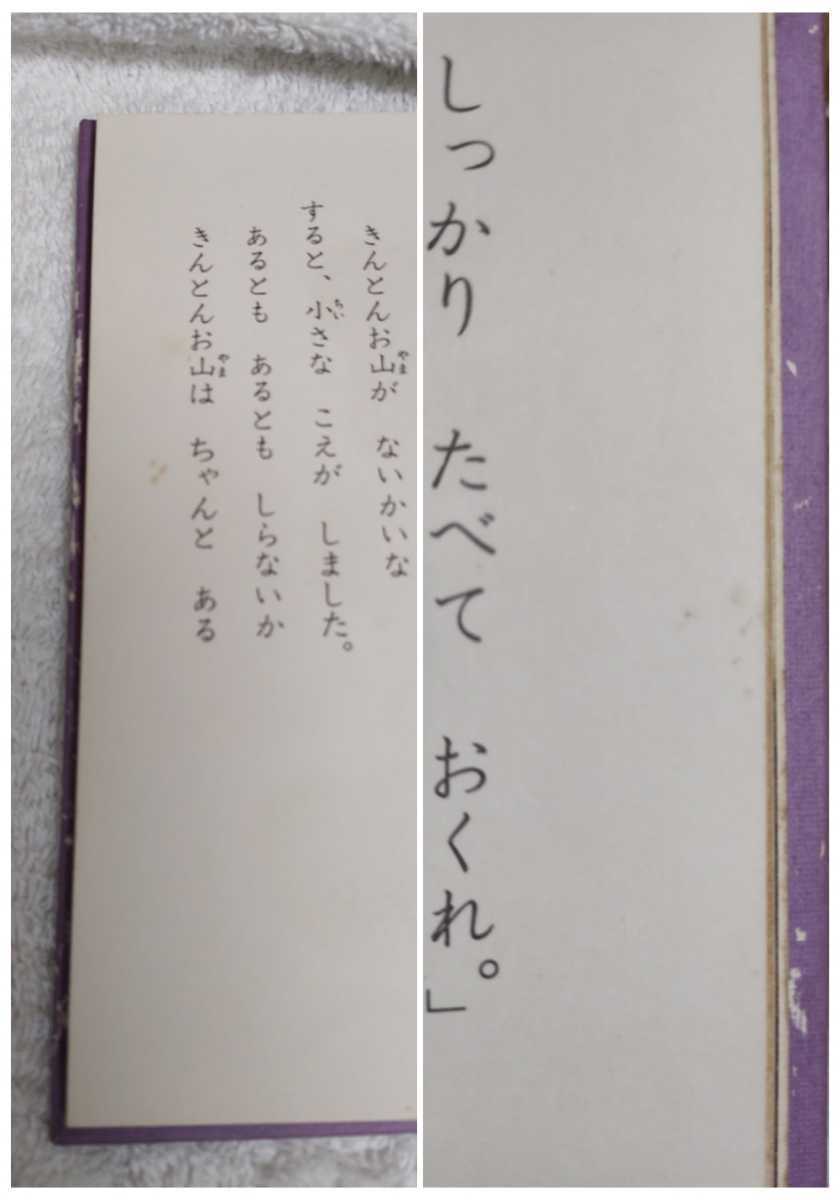 きんとんお山が ないかいな
すると、小さな こえが しました。
あるとも あるとも しらないか
きんとんお山は ちゃんと ある
しっかり たべて おくれ。」